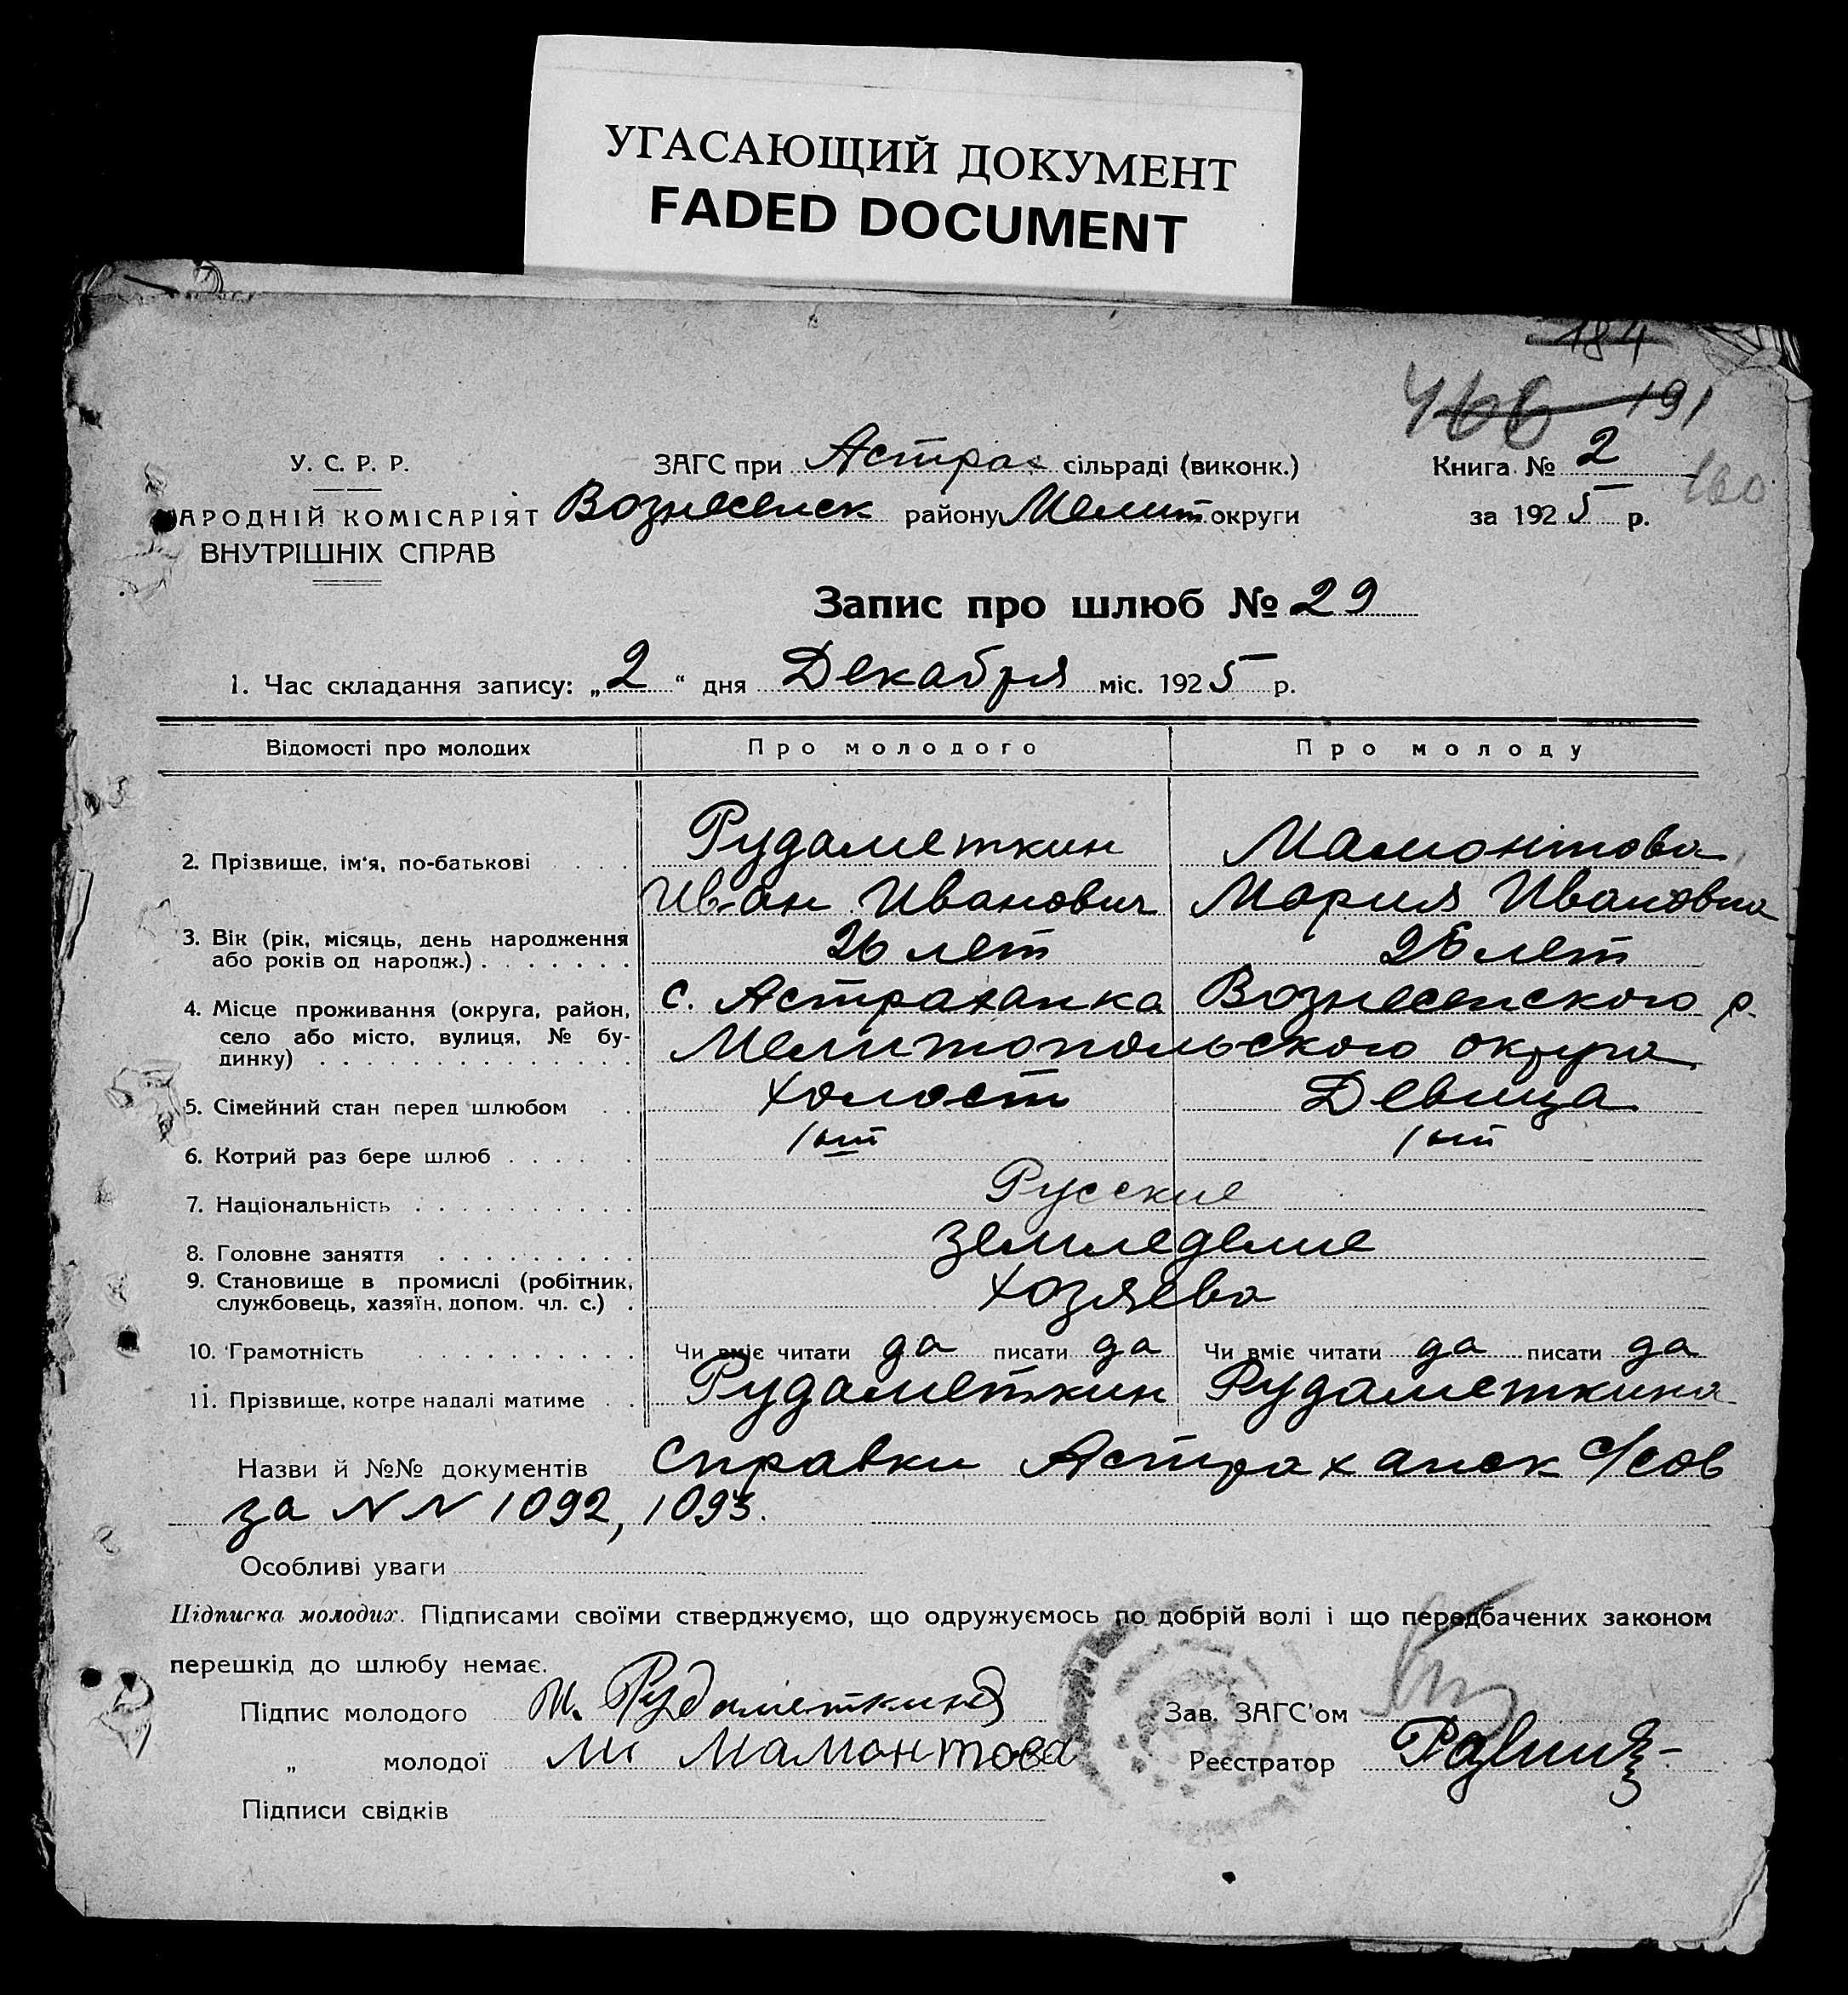 УГАСАЮЩИЙ ДОКУМЕНТ
FADED DOCUMENT
184
466 191
160
У. С. Р. Р.
АРОДНІЙ КОМІСАРІЯТ
ВНУТРІШНІХ СПРАВ
ЗАГС при Астрах сільраді (виконк.)
Вознесенск району Мелит округи
Книга № 2
за 1925 р.
Запис про шлюб № 29
1. Час складання запису: „2“ дня Декабря міс. 1925 р.
Відомості про молодих Про молодого Про молоду
2. Прізвище, ім'я, по-батькові . . . . Рудаметкин Мамонтова
Иван Иванович Мария Ивановна
3. Вік (рік, місяць, день народження або років од нарояж.) . . . . . . . 26 лет 26 лет
4. Місце проживання (округа, район, село або місто, вулиця, № будинку) . . . . . . . . . . . . . . с. Астраханка Вознесенского р.
Мелитопольского округа
5. Сімейний стан перед шлюбом . . холост Девица
6. Котрий раз бере шлюб . . . . . . 1ый 1ый
7. Національність . . . . . . . . . . Русские
8. Головне заняття . . . . . . . . . земледелие
9. Становище в промислі (робітник, службовець, хазяїн, допом. чл. с.) . хозяева
10. Грамотність . . . . . . . . . . Чи вміє читати да писати да Чи вміє читати да писати да
11. Прізвище, котре надалі матиме . . Рудаметкин Рудаметкина
Назви й №№ документів Справки Астраханск с/сов
за NN 1092, 1093.
Особливі уваги
Підписка молодих. Підписами своїми стверджуємо, що одружуємось по добрій волі і що передбачених законом
перешкід до шлюбу немає.
Підпис молодого И. Рудаметкинъ Зав. ЗАГС'ом
„ молодої М Мамонтова Реєстратор
Підписи свідків